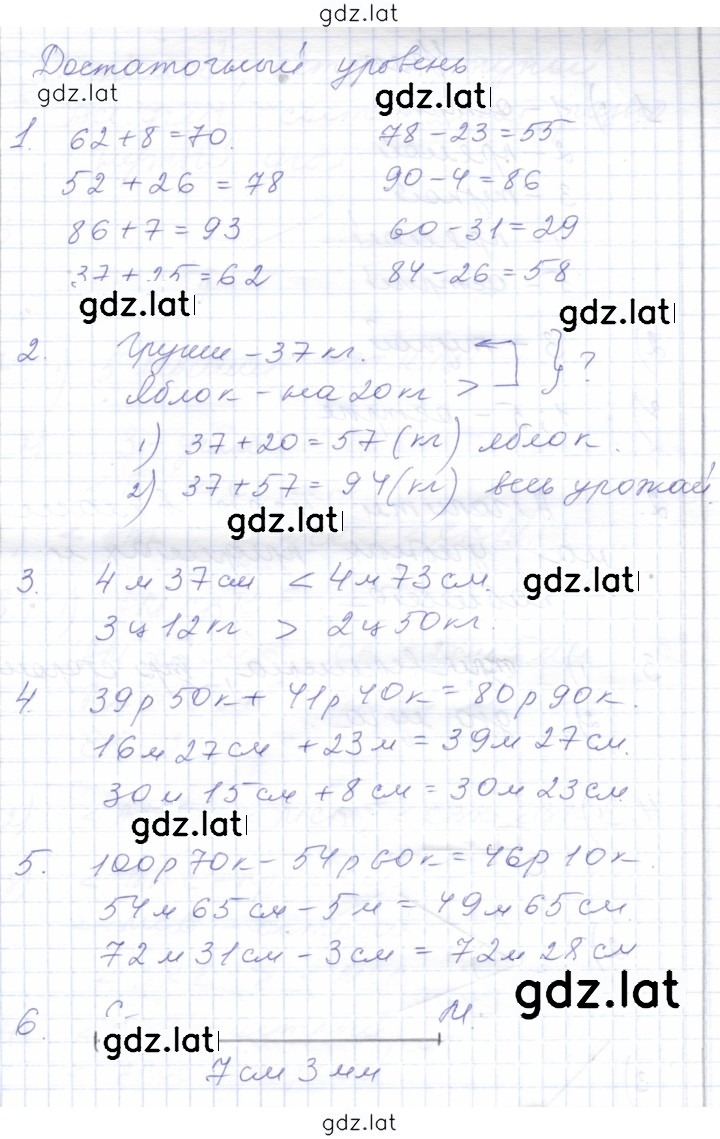 gdz.lat
Достаточный уровень
gdz.lat gdz.lat
1. 62+8=70. 78-23=55
52+26=78 90-4=86
86+7=93 60-31=29
37+25=62 84-26=58
gdz.lat gdz.lat
2. Груши - 37 кг. } ?
Яблок - на 20 кг >
1) 37+20=57(кг) яблок.
2) 37+57=94(кг) весь урожай.
gdz.lat
3. 4 м 37 см < 4 м 73 см. gdz.lat
3 ц 12 кг > 2 ц 50 кг.
4. 39р 50к + 41р 40к = 80р 90к.
16м 27см + 23м = 39м 27см.
30м 15см + 8см = 30м 23см
gdz.lat
5. 100р 70к - 54р 60к = 46р 10к.
54м 65см - 5м = 49м 65см.
72м 31см - 3см = 72м 28см
gdz.lat
6. С М.
gdz.lat
7 см 3 мм
gdz.lat